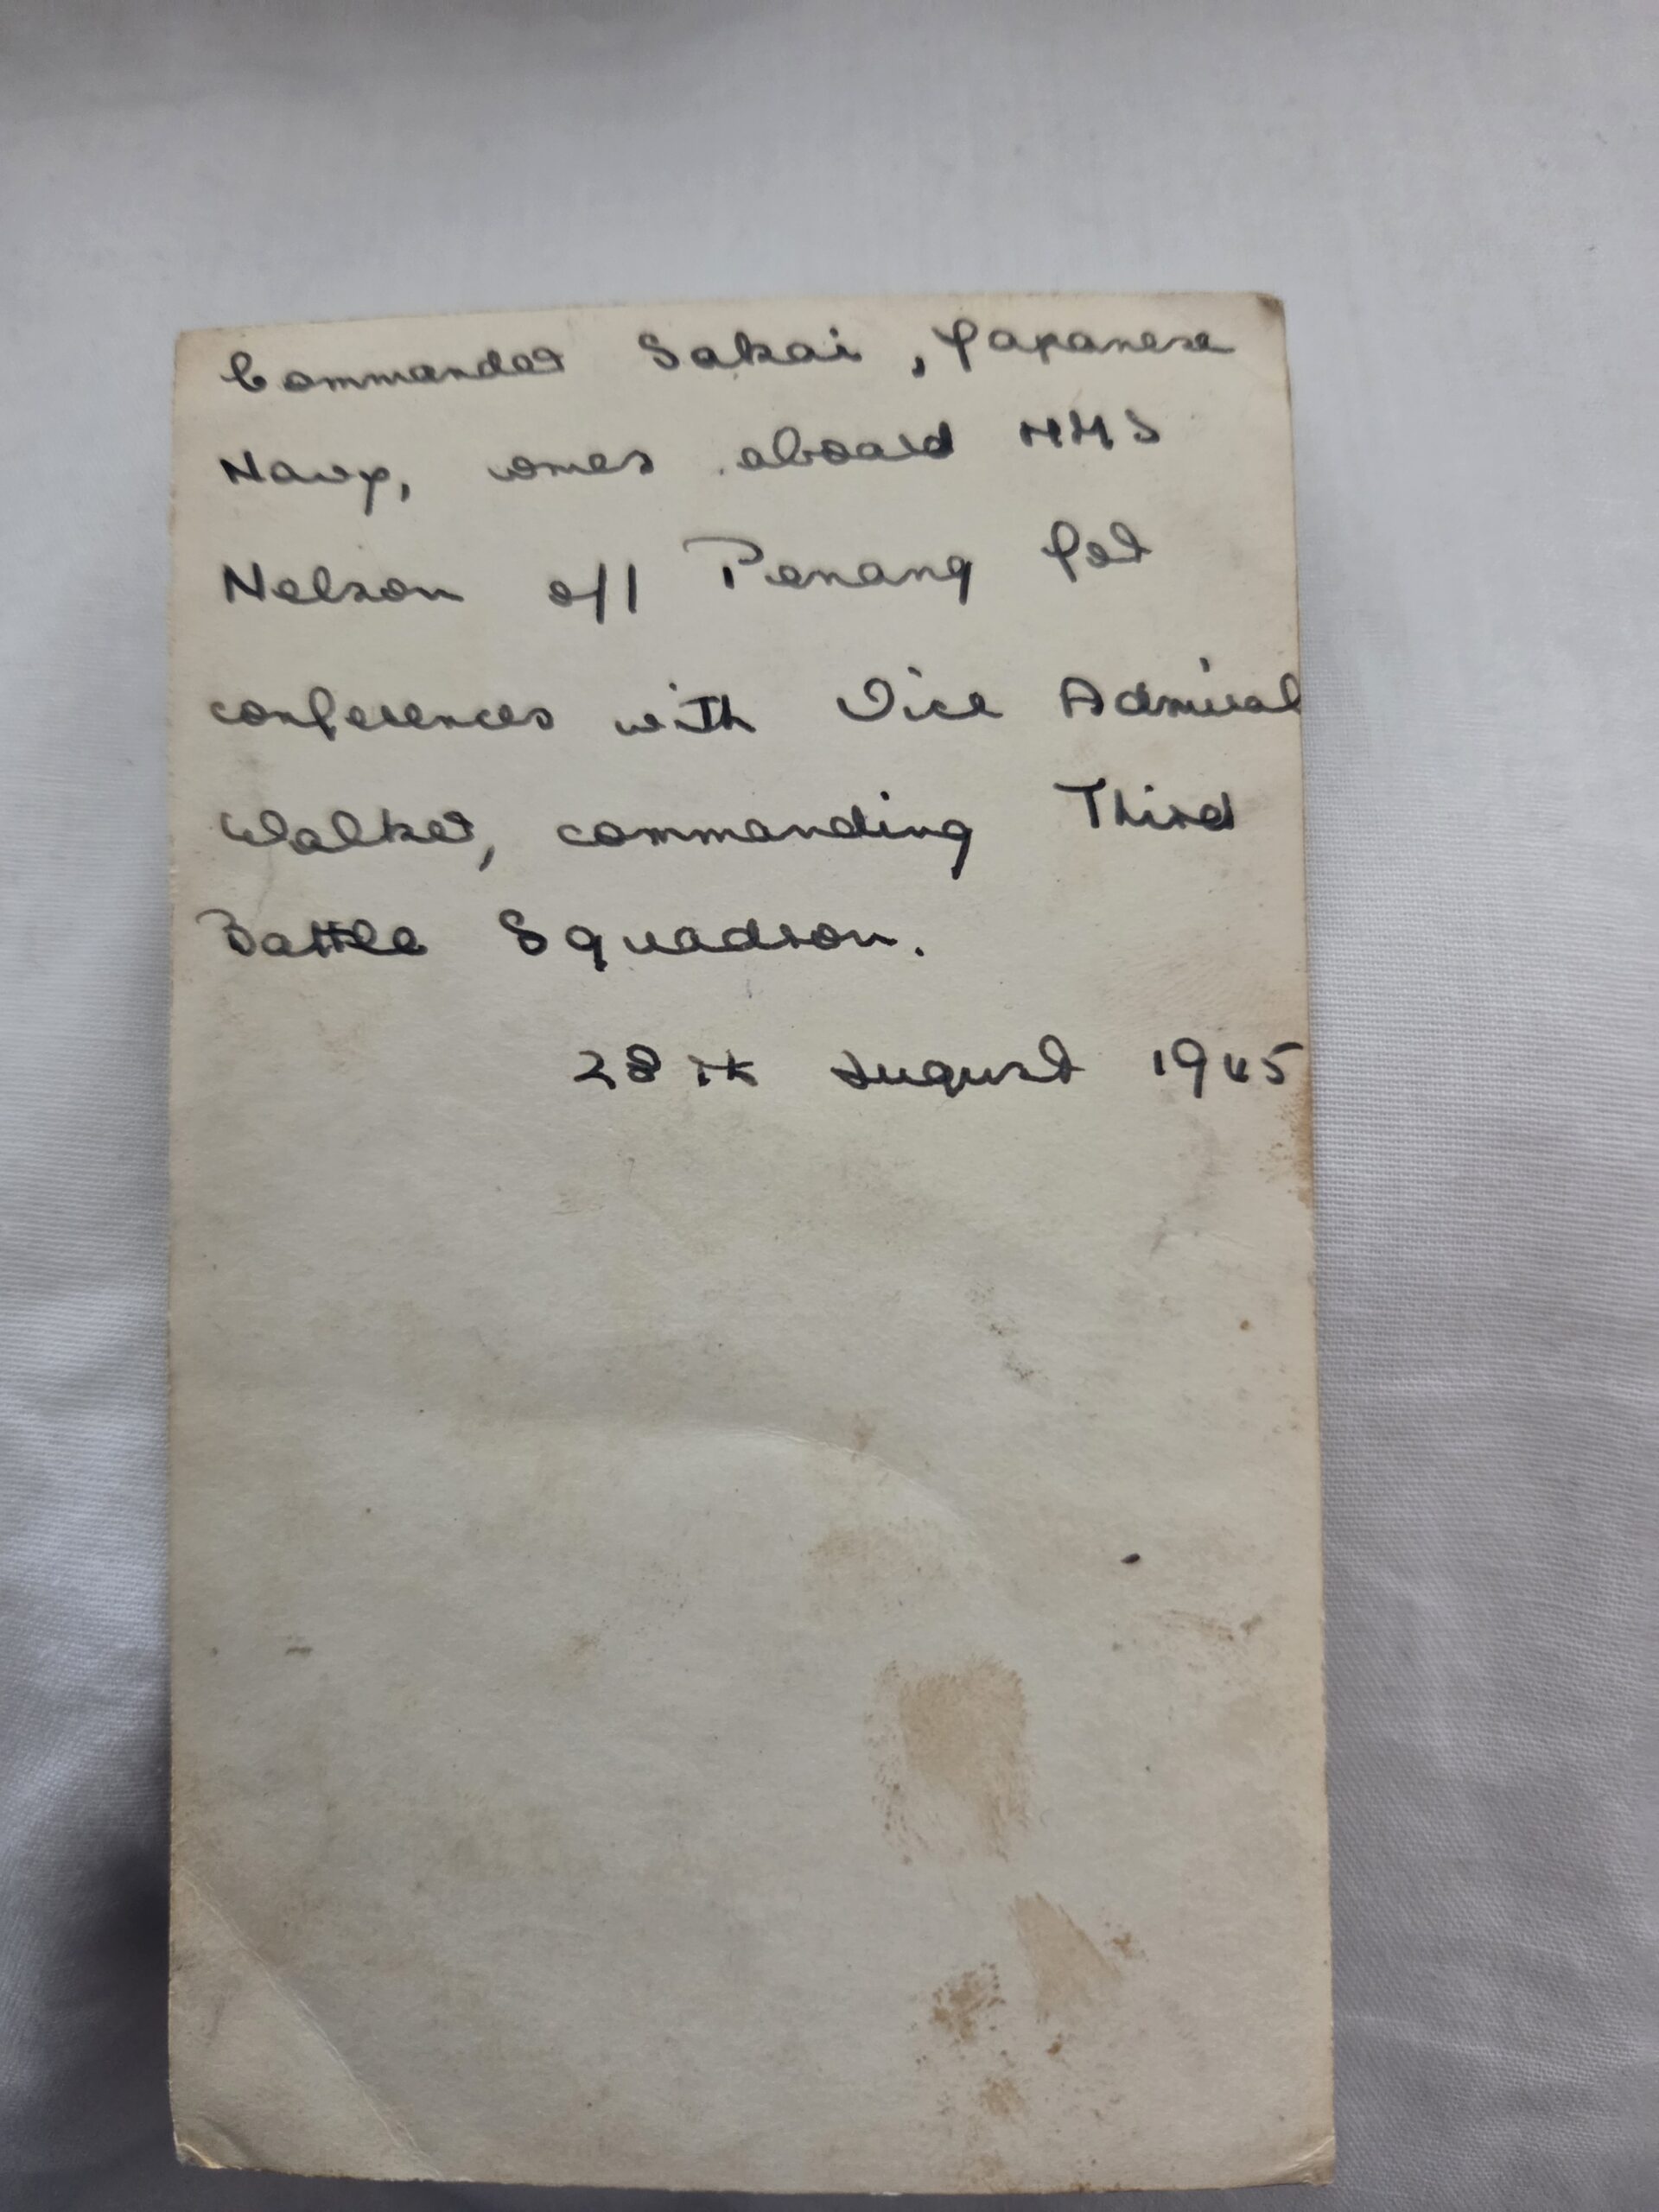 Commander Sakai, Japanese
Navy, comes aboard HMS
Nelson off Penang for
conferences with Vice Admiral
Walker, commanding Third
Battle Squadron.
28th August 1945